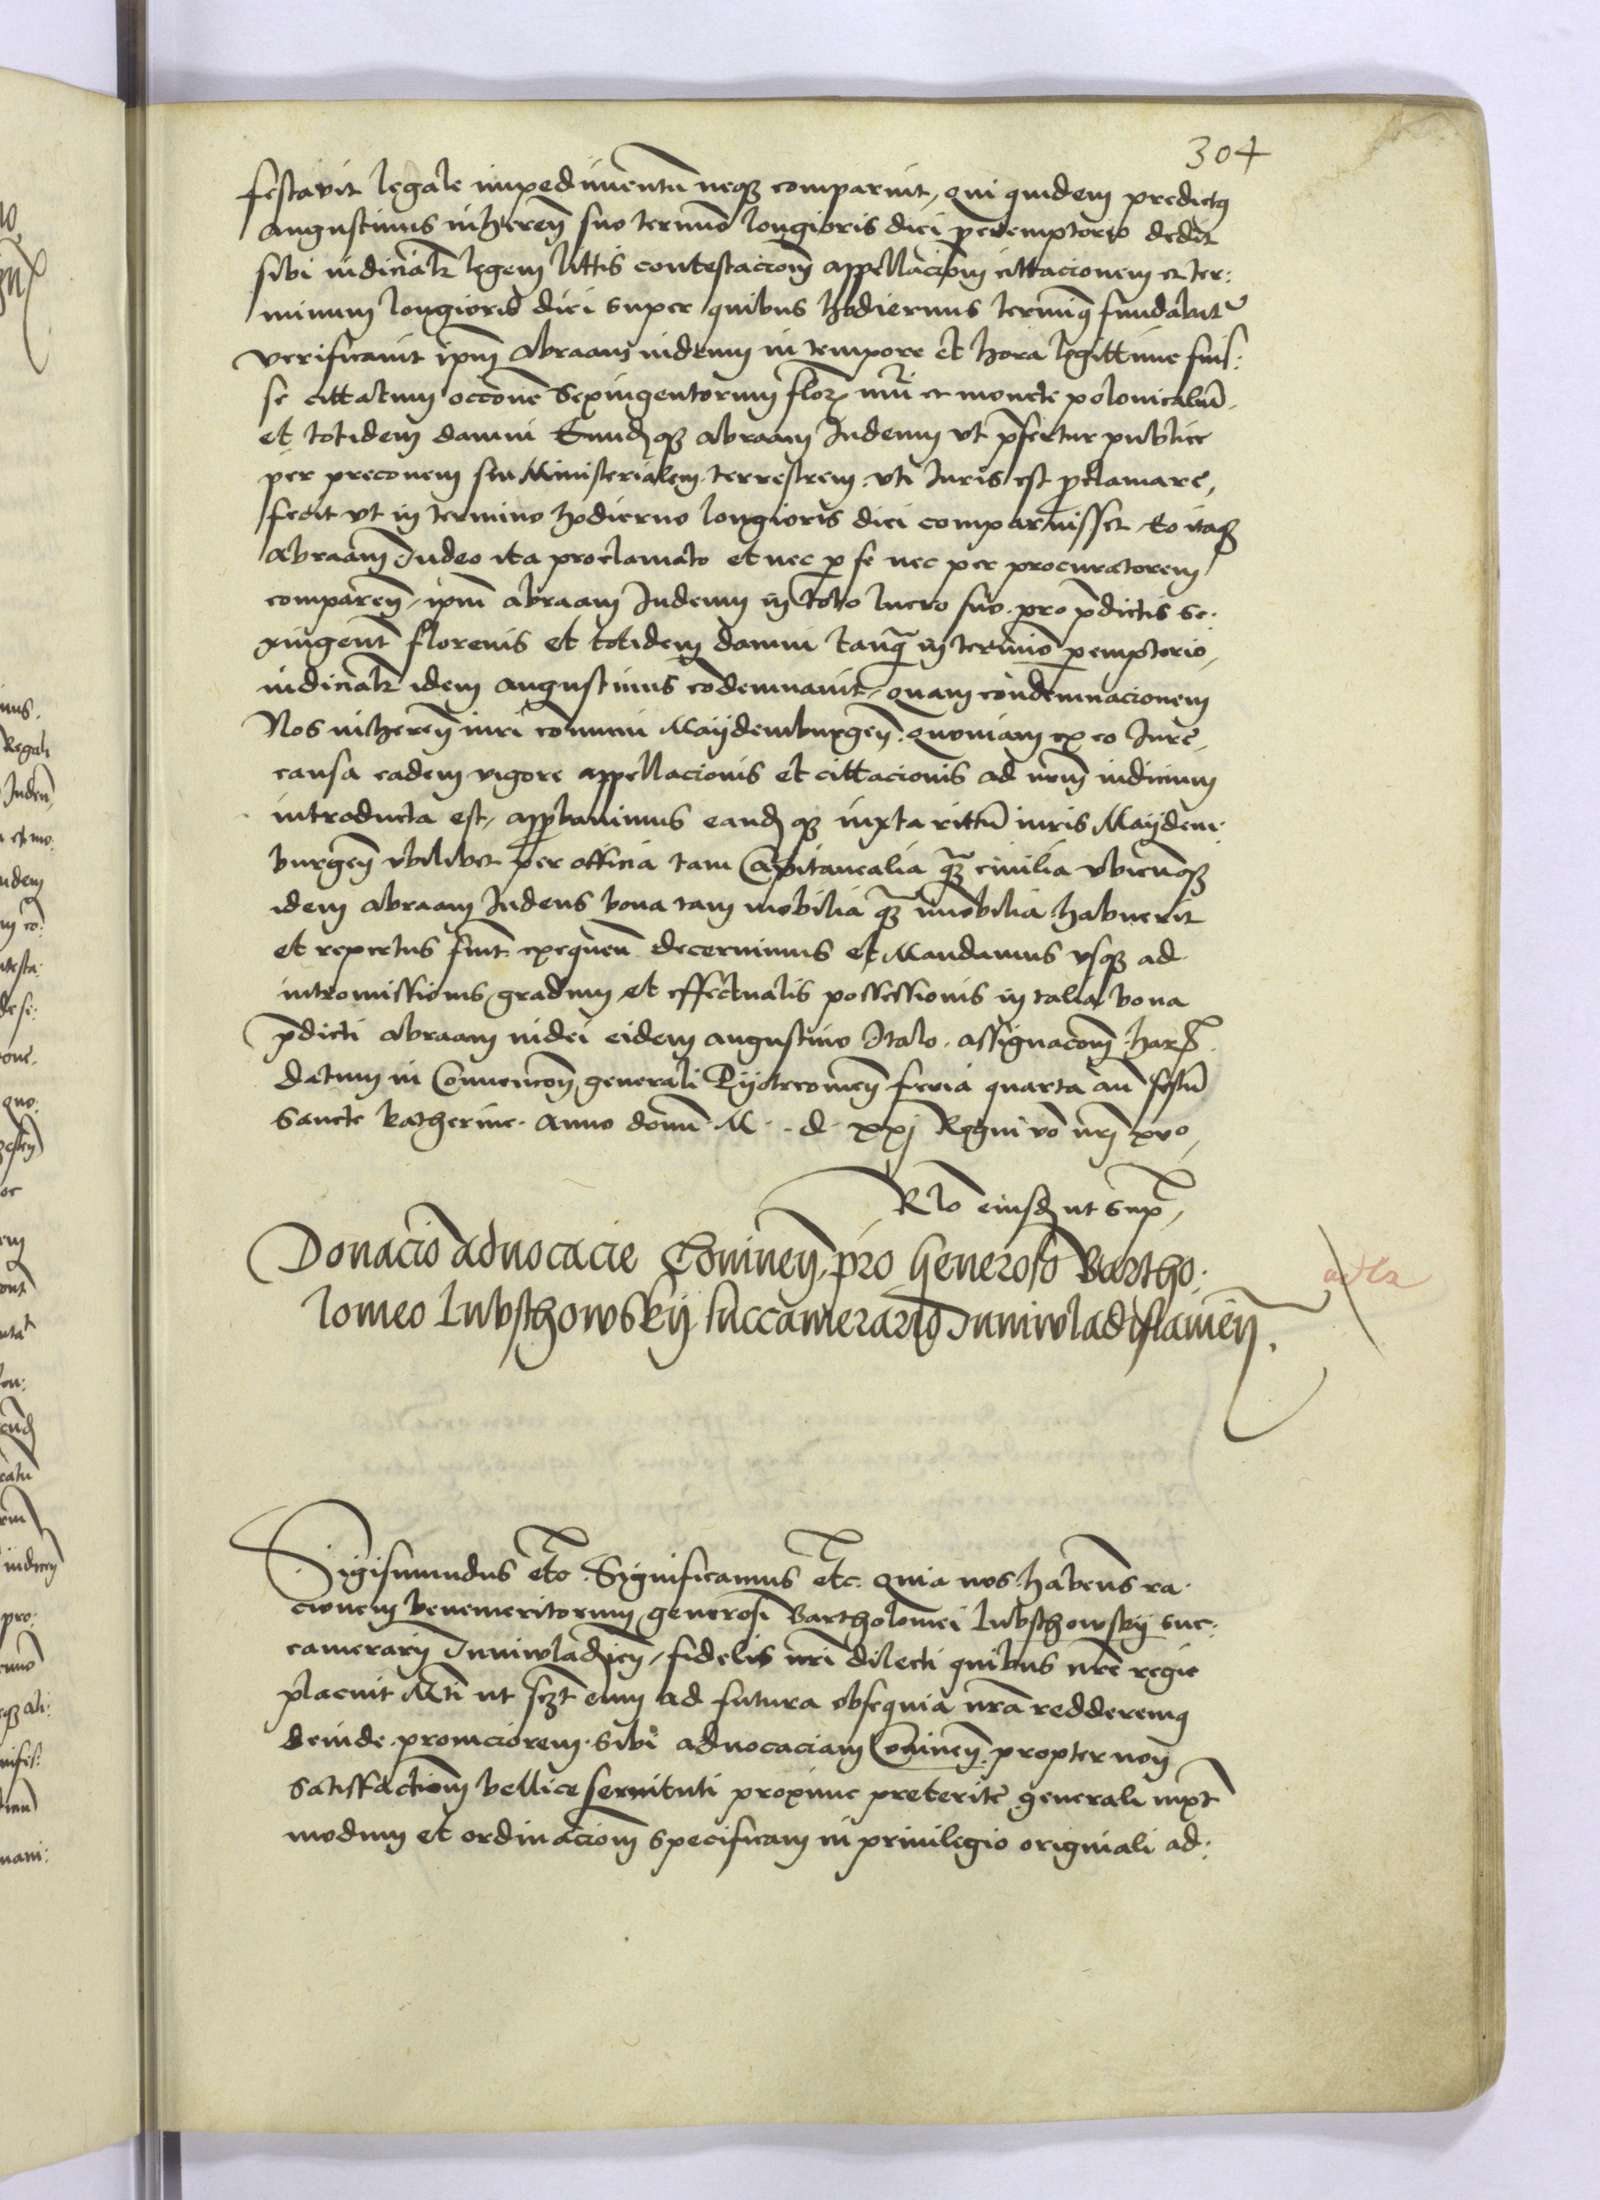 304
festavit legale impedimentū neqз comparuit, qui quidem predictꝰ
Augustinus inhereñ suo termino longioris diei peremptorio dedit
sibi iudicialr̄ legem littis contestacioñ appellacioñ cittacionem et ter:
minum longioris diei super quibus hodiernus terminꝰ fundabatᵘ
verificauit ipm̄ Abraam iudeum in tempore et hora legittime fuis:
se cittatum occōne Sexingentorum florꝝ mū et monete polonicalīū
et totidem damni Eundqз Abraam Iudeum vt p̄fertur publice
per preconem seu Ministerialem terrestrem vti Iuris est proclamare
fecit vt in termino hodierno longioris diei comparuisset Eo itaqз
Abraam Iudeo ita proclamato et nec p se nec per procuratorem
compareñ, ipm̄ Abraam Iudeum in toto lucro suo pro p̄dictis se:
xingent̄ florenis et totidem damni tanqᷓ in termino pemptorio,
iudicialr̄ idem Augustinus cōdemnauit, quam condemnacionem
Nos inhereñ iuri cōmuni Maijdemburgeñ quoniam ex eo Iure,
causa eadem vigore appellacionis et cittacionis ad nrm̄ iudicium
introducta est, approbauimus eandqз iuxta rittū iuris Maijdem:
burgeñ vbilibet per officia tam Capitanealia qᷓ ciuilia vbicunqз
idem Abraam Iudeus bona tam mobilia qᷓ īmobilia habuerit
et repertus fuit exequeñ decernimus et Mandamus vsqз ad
intromissionis gradum et effectualis possessionis in talia bona
p̄dicti Abraam iudei eidem Augustino Italo assignacoñ harꝝ
datum in Conuencoñ generali Pijotrcowieñ feria quarta añ festū
Sancte Katherine Anno domī M d xxj Regni vō nrī xvᵒ,
Rlō eiusd ut sup,
Donacio aduocacie Coninen, pro Generoso Bartho:
lomeo Lubsthowskij succamerario Iuniwladislauieñ.
Sigismundus etc Significamus etc. quia nos habentes ra:
cionem benemeritorum generosi Bartholomei Lubsthowskij suc:
camerarij Iuniwladieñ, fidelis nrī dilecti quibus nrē regie
placuit Mti ut eum ad futura obsequia nrā redderemꝰ
deinde promciorem sibi aduocaciam Coninen̄ propter non
satisfactioñ bellice seruituti proxime preterite generali iuxt
modum et ordinacioñ specificam in priuilegio originali ad: